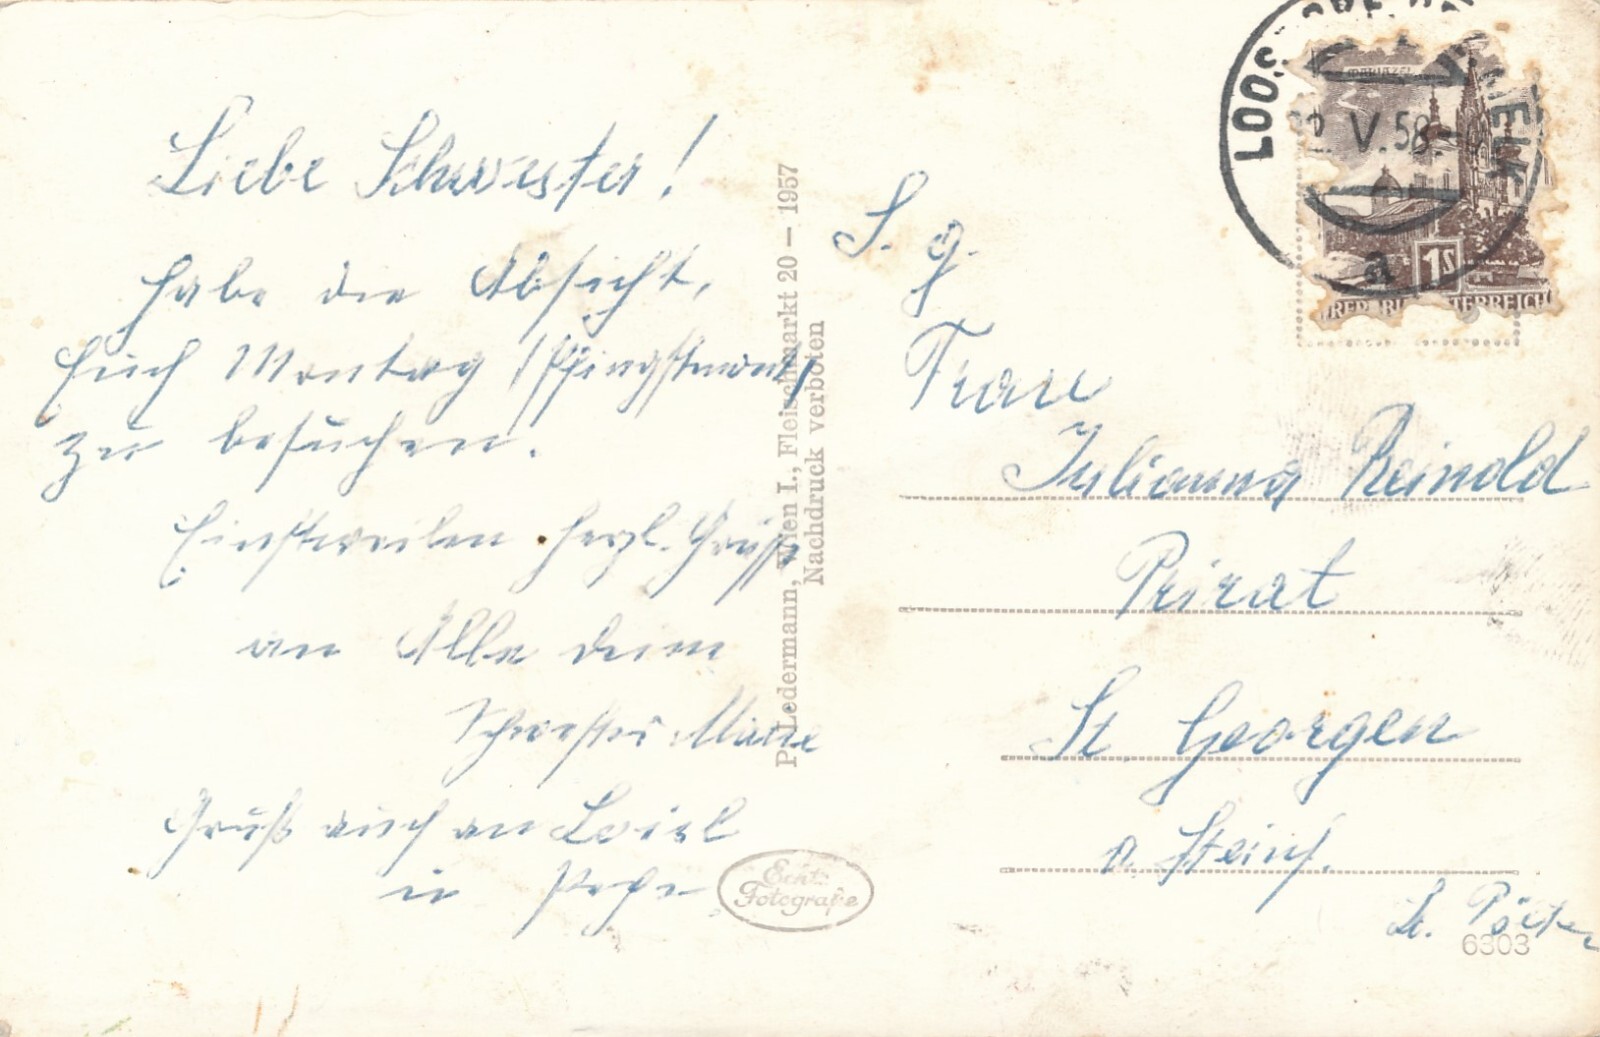 Liebe Schwester!
habe die Absicht,
Euch Montag (Pfingstmont)
zu besuchen.
Einstweilen herzl. Grüße
an Alle deine
Schwester Marie
Gruß auch an Loisl
u Pepe
P. Ledermann, Wien I., Fleischmarkt 20 – 1957
Nachdruck verboten
Echte
Fotografie
MARIAZELL
1S
REPUBLIK ÖSTERREICH
LOOSDORF MELK
2. V. 58-
a
S. g.
Frau
Julianna Reinold
Privat
St Georgen
a. Steinf.
St. Pölten
6303